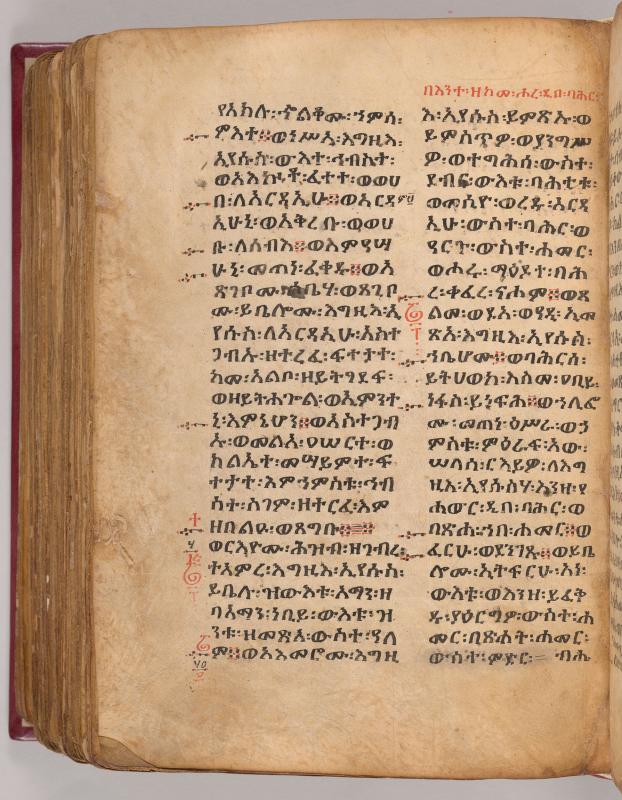 በእንተ፡ዘከመ፡ሖረ፡ዲበ፡ባሕር፡
የአክሉ፡ኍልቆሙ፡ኀምሰ፡
ምእት፨ወነሥአ፡እግዚእ፡
ኢየሱስ፡ውእተ፡ኅብስተ፡
ወአእኰተ፡ፈተተ፡ወወሀ
በ፡ለአርዳኢሁ፨ወአርዳ
ኢሁኒ፡ወአቅረቡ፡ወወሀ
ቡ፡ለሰብእ፨ወእምዓሣ
ሁኒ፡መጠነ፡ፈቀዱ፨ወአ
ጽገቦሙ፡ወጸጊቦ
ሙ፡ይቤሎሙ፡እግዚእ፡ኢ
የሱስ፡ለአርዳኢሁ፡አስተ
ጋብኡ፡ዘተረፈ፡ፍተታተ፡
ከመ፡አልቦ፡ዘይትገደፍ፡
ወዘይትሐጐል፡ወኢምንተ
ኒ፡እምኔሆን፨ወአስተጋብ
ኡ፡ወመልአ፡ዐሠርተ፡ወ
ክልኤተ፡መሣይምተ፡ፍ
ተታተ፡እምኀምስቱ፡ኅብ
ስተ፡ስገም፡ዘተርፈ፡እም
ዘበልዑ፡ወጸግቡ፨
ወርእዮሙ፡ሕዝብ፡ዘገብረ፡
ተአምረ፡እግዚእ፡ኢየሱስ፡
ይቤሉ፡ዝውእቱ፡አማን፡ዘ
በአማን፡ነቢይ፡ውእቱ፡ዝ
ንቱ፡ዘመጽአ፡ውስተ፡ዓለ
ም፨ወአእመሮሙ፡እግዚ
እ፡ኢየሱስ፡ይምጽኡ፡ወ
ይምስጥዎ፡ወያንግሥ
ዎ፡ወተግሕሰ፡ውስተ፡
ደብር፡ውእቱ፡ባሕቲቱ፡
ወመስዮ፡ወረዱ፡አርዳ
ኢሁ፡ውስተ፡ባሕር፡ወ
ዓርጉ፡ውስተ፡ሐመር፡
ወሖሩ፡ማዕዶተ፡ባሕ
ር፡ቅፈር፡ናሖም፨ወጸ
ልመ፡ወዓዲ፡ኢመ
ጽአ፡እግዚእ፡ኢየሱስ፡
ኀቤሆሙ፨ወባሕርሰ፡
ይትሀወክ፡እስመ፡ዐቢይ፡
ነፋስ፡ይነፍሕ፨ወኀሊፎ
ሙ፡መጠነ፡ዕሥራ፡ወኃ
ምስቱ፡ምዕራፍ፡አው፡
ሠላሳ፡ርእይዎ፡ለእግ
ዚእ፡ኢየሱስሃ፡እንዘ፡የ
ሐውር፡ዲበ፡ባሕር፡ወ
በጽሐ፡ኀበ፡ሐመር፨ወ
ፈርሁ፡ወደንገጹ፨ወይቤ
ሎሙ፡ኢትፍርሁ፡አነ፡
ውእቱ፡ወእንዘ፡ይፈቅ
ዱ፡ያዕርግዎ፡ውስተ፡ሐ
መር፡በጽሐት፡ሐመር፡
ውስተ፡ምድር፡ ብሔ